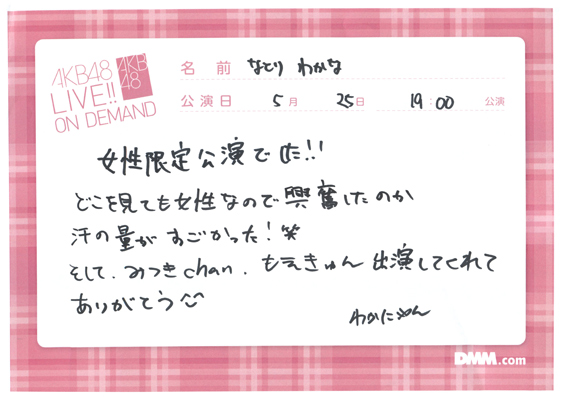 AKB48
LIVE!!
ON DEMAND
AKB
48
名 前 なとり わかな
公演日 5月 25日 19:00 公演
女性限定公演でした!!
どこを見ても女性なので興奮したのか
汗の量がすごかった!笑
そして、みつきchan、もえきゅん 出演してくれて
ありがとう
わかにゃん
DMM.com